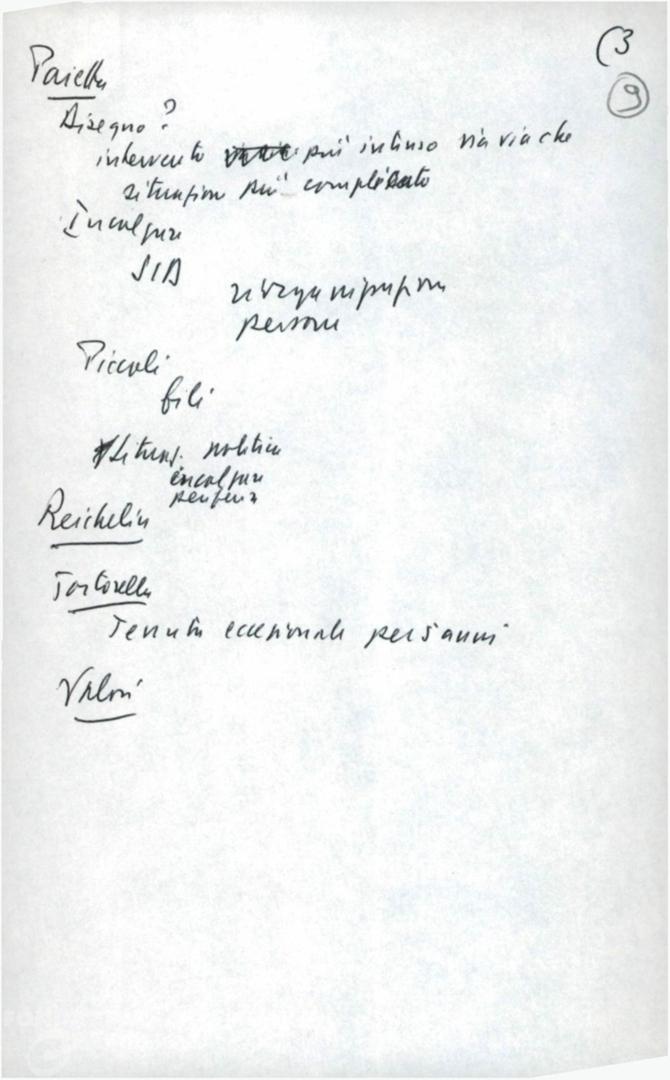 (3
9
Paietta
Disegno?
intervento più intenso via via che
situazione più complicata
Inculpare
SID
riorganizzazione
persone
Piccoli
fili
situaz. politica
Reichlin
Tortorella
Tenuta eccezionale per 5 anni
Valori